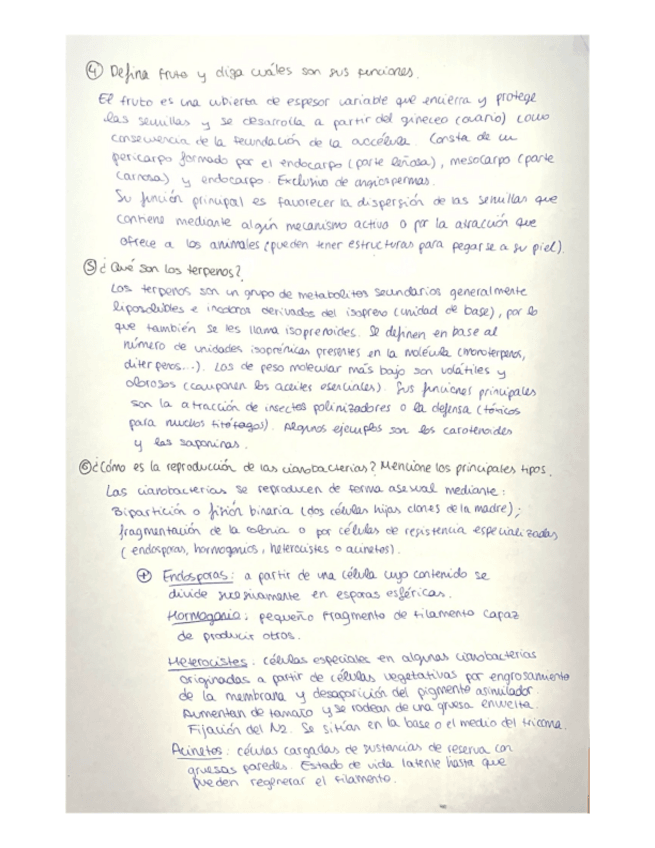 ④ Defina fruto y diga cuáles son sus funciones.
El fruto es una cubierta de espesor variable que encierra y protege
las semillas y se desarrolla a partir del gineceo (ovario) como
consecuencia de la fecundación de la oocélula. Consta de un
pericarpo formado por el endocarpo (parte leñosa), mesocarpo (parte
carnosa) y endocarpo. Exclusivo de angiospermas.
Su función principal es favorecer la dispersión de las semillas que
contiene mediante algún mecanismo activo o por la atracción que
ofrece a los animales (pueden tener estructuras para pegarse a su piel).
⑤ ¿Qué son los terpenos?
Los terpenos son un grupo de metabolitos secundarios generalmente
liposolubles e incoloros derivados del isopreno (unidad de base), por lo
que también se les llama isoprenoides. Se definen en base al
número de unidades isoprénicas presentes en la molécula (monoterpenos,
diterpenos...). Los de peso molecular más bajo son volátiles y
olorosos (componen los aceites esenciales). Sus funciones principales
son la atracción de insectos polinizadores o la defensa (tóxicos
para muchos fitófagos). Algunos ejemplos son los carotenoides
y las saponinas.
⑥ ¿Cómo es la reproducción de las cianobacterias? Mencione los principales tipos.
Las cianobacterias se reproducen de forma asexual mediante:
Bipartición o fisión binaria (dos células hijas clones de la madre);
fragmentación de la colonia o por células de resistencia especializadas
(endosporas, hormogonios, heterocistes o acinetos).
⊕ Endosporas: a partir de una célula cuyo contenido se
divide sucesivamente en esporas esféricas.
Hormogonio: pequeño fragmento de filamento capaz
de producir otros.
Heterocistes: células especiales en algunas cianobacterias
originadas a partir de células vegetativas por engrosamiento
de la membrana y desaparición del pigmento asimilador.
Aumentan de tamaño y se rodean de una gruesa envuelta.
Fijación del N2. Se sitúan en la base o el medio del tricoma.
Acinetos: células cargadas de sustancias de reserva con
gruesas paredes. Estado de vida latente hasta que
pueden regenerar el filamento.